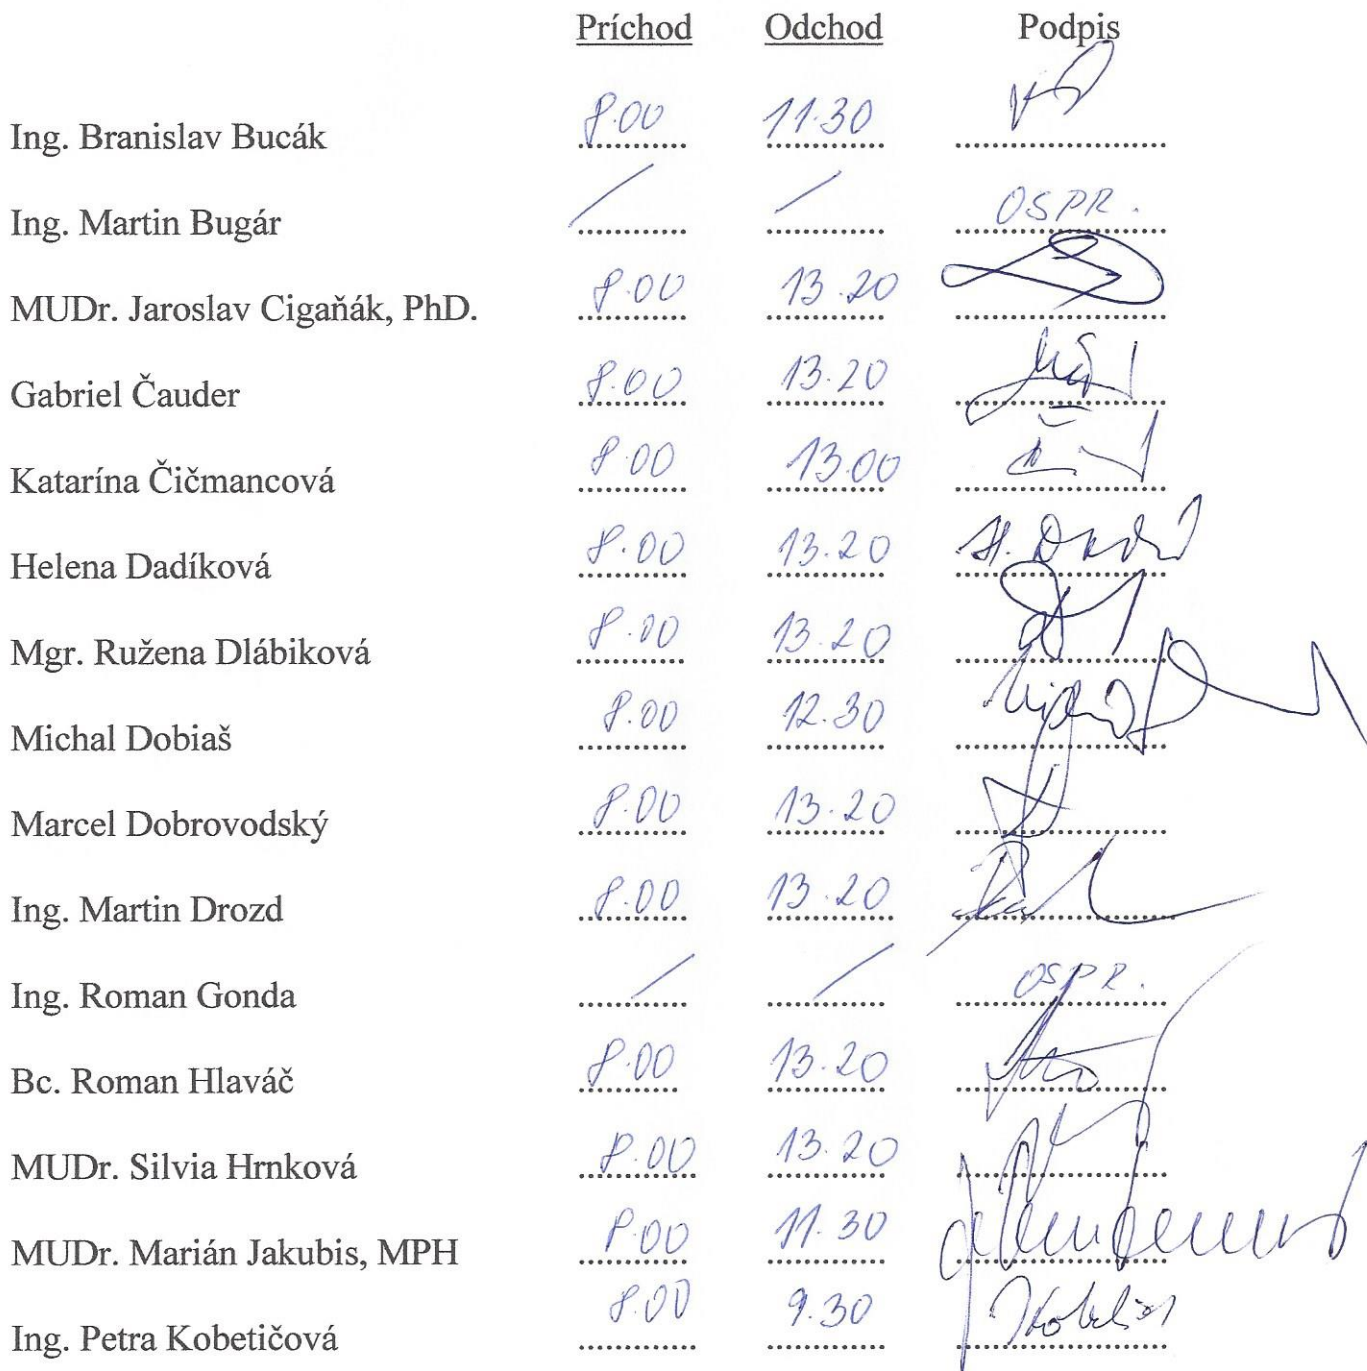 Príchod Odchod Podpis
Ing. Branislav Bucák 8.00 11.30
Ing. Martin Bugár / / OSPR.
MUDr. Jaroslav Cigaňák, PhD. 8.00 13.20
Gabriel Čauder 8.00 13.20
Katarína Čičmancová 8.00 13.00
Helena Dadíková 8.00 13.20 H.
Mgr. Ružena Dlábiková 8.00 13.20
Michal Dobiaš 8.00 12.30
Marcel Dobrovodský 8.00 13.20
Ing. Martin Drozd 8.00 13.20
Ing. Roman Gonda / / OSPR.
Bc. Roman Hlaváč 8.00 13.20
MUDr. Silvia Hrnková 8.00 13.20
MUDr. Marián Jakubis, MPH 8.00 11.30
Ing. Petra Kobetičová 8.00 9.30